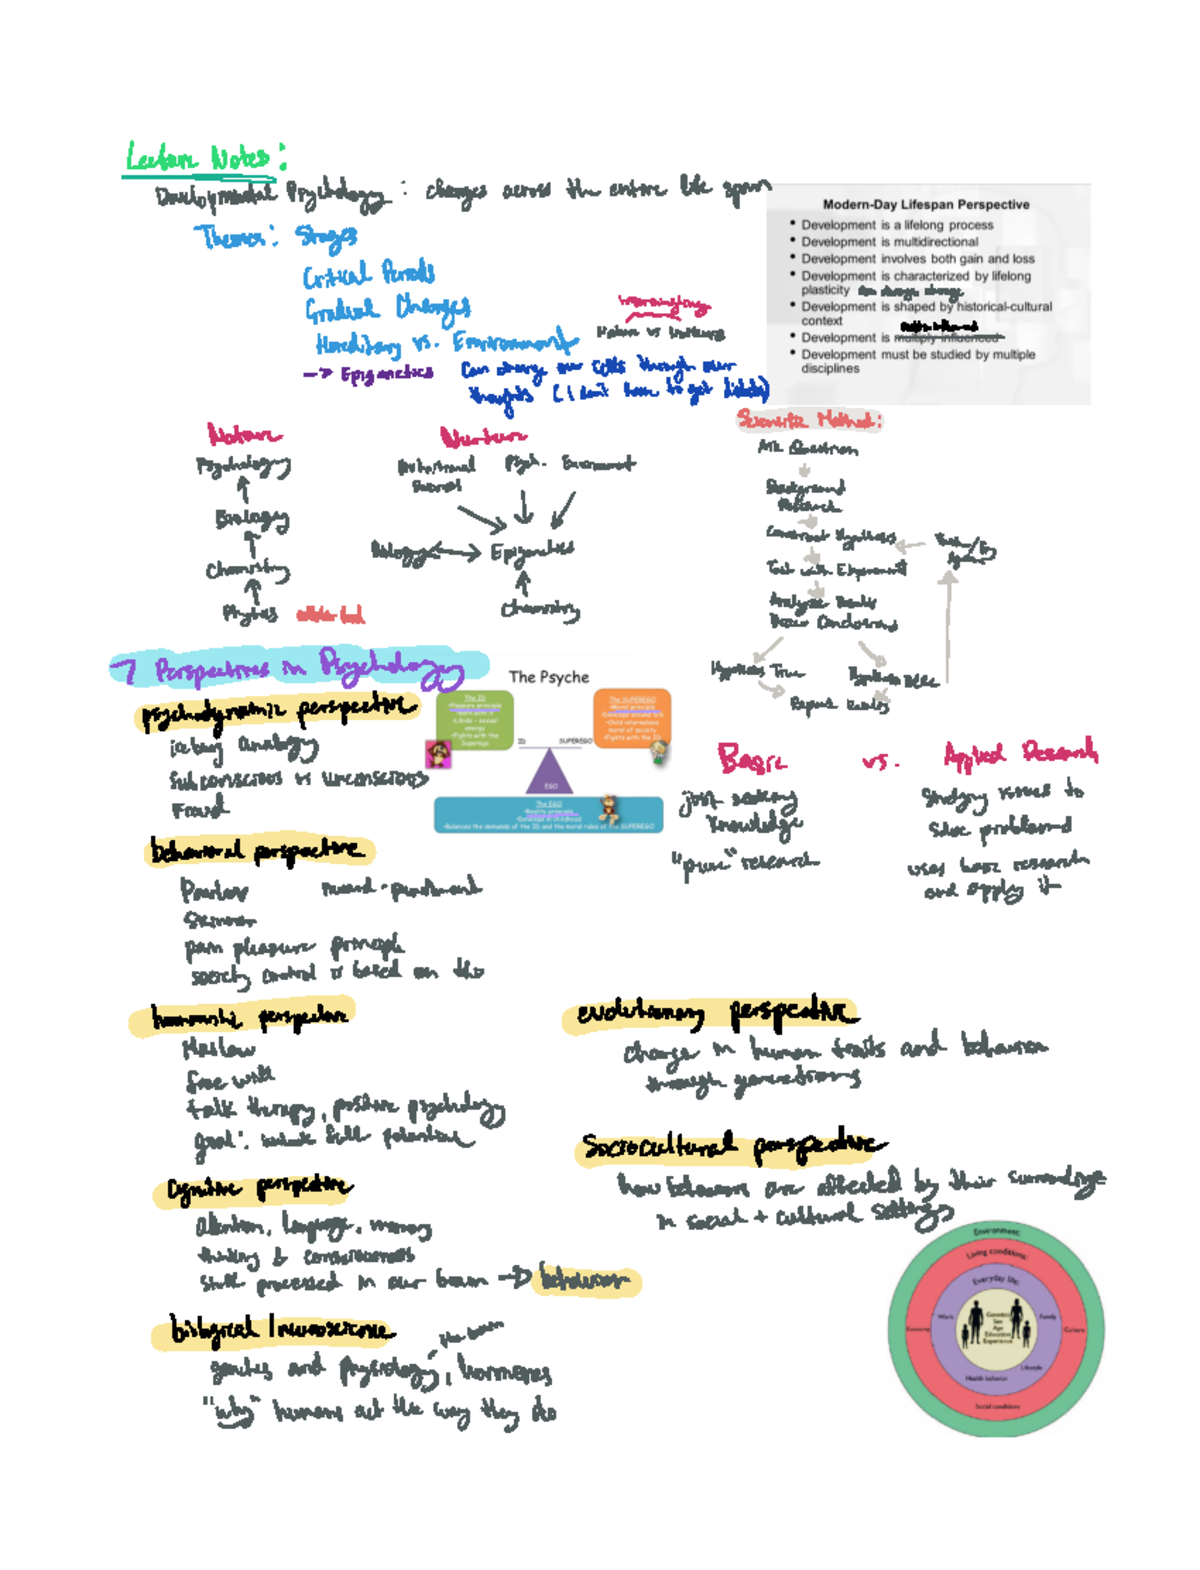 Lecture Notes:
Developmental Psychology: changes across the entire life span
Themes: Stages
Critical Periods
Gradual Changes
Hereditary vs. Environment
Nature vs Nurture
→ Epigenetics
Can change our cells through our
thoughts (I don't have to get diabetes)
Modern-Day Lifespan Perspective
• Development is a lifelong process
• Development is multidirectional
• Development involves both gain and loss
• Development is characterized by lifelong
plasticity
• Development is shaped by historical-cultural
context
• Development is multiply influenced
• Development must be studied by multiple
disciplines
Nature
Psychology
Biology
Chemistry
Physics
Nurture
Psych. Environment
Biology Epigenetics
Chemistry
Scientific Method:
Ask Question
Background
Research
Construct Hypothesis
Think/Try
Again
Test with Experiment
Analyze Results
Draw Conclusions
Hypothesis True
Hypothesis False
Report Results
7 Perspectives in Psychology
psychodynamic perspective
iceberg analogy
subconscious vs unconscious
Freud
The Psyche
The ID
•Pleasure principle
•Libido - sexual
energy
•Fights with the
Superego
The SUPEREGO
•Moral principle
•Child internalises
moral of society
•Fights with the ID
ID
SUPEREGO
EGO
The EGO
•Reality principle
•Develops in childhood
•Balances the demands of the ID and the moral rules of the SUPEREGO
Basic vs. Applied Research
just seeking
knowledge
"pure" research
Studying issues to
solve problems
uses basic research
and apply it
behavioral perspective
Pavlov reward-punishment
Skinner
pain pleasure principle
society control is based on this
humanistic perspective
Maslow
free will
talk therapy, positive psychology
goal: full potential
cognitive perspective
attention, language, memory
thinking & consciousness
stuff processed in our brain → behaviors
biological/neuroscience
the brain
genetics and physiology, hormones
"why" humans act the way they do
evolutionary perspective
change in human traits and behavior
through generations
Sociocultural perspective
how behaviors are affected by their surroundings
in social + cultural settings
Environment:
Living conditions:
Everyday life:
Work
Family
Economy
Culture
Genetics
Sex
Age
Education
Experience
Lifestyle
Health behavior
Social conditions